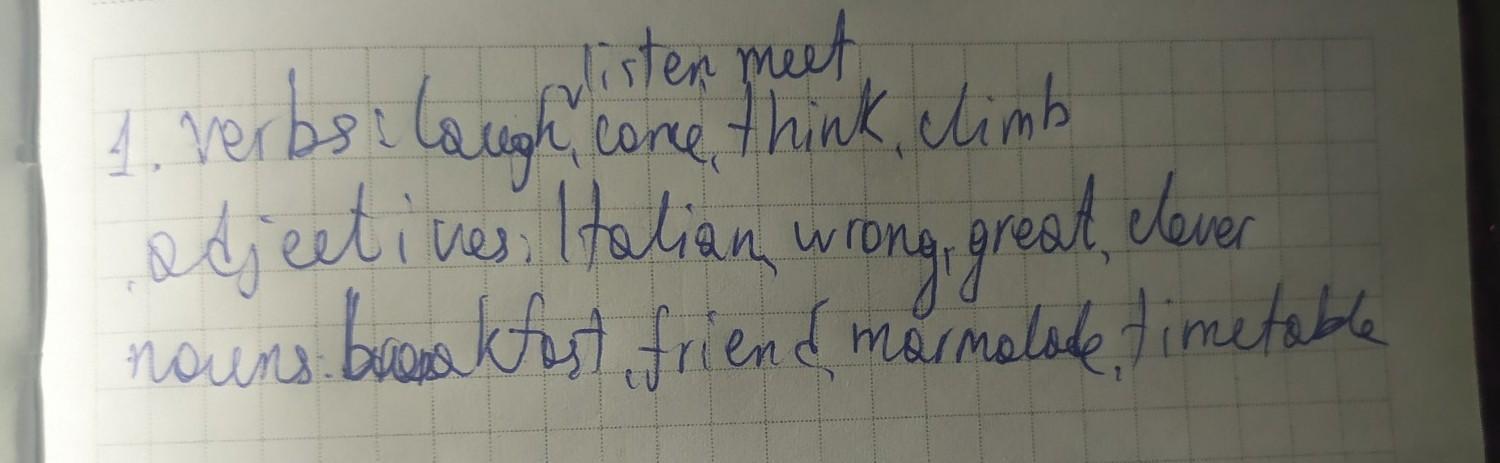 listen meet
1. verbs: laugh, come, think, climb
adjectives: Italian, wrong, great, clever
nouns: breakfast, friend, marmalade, timetable